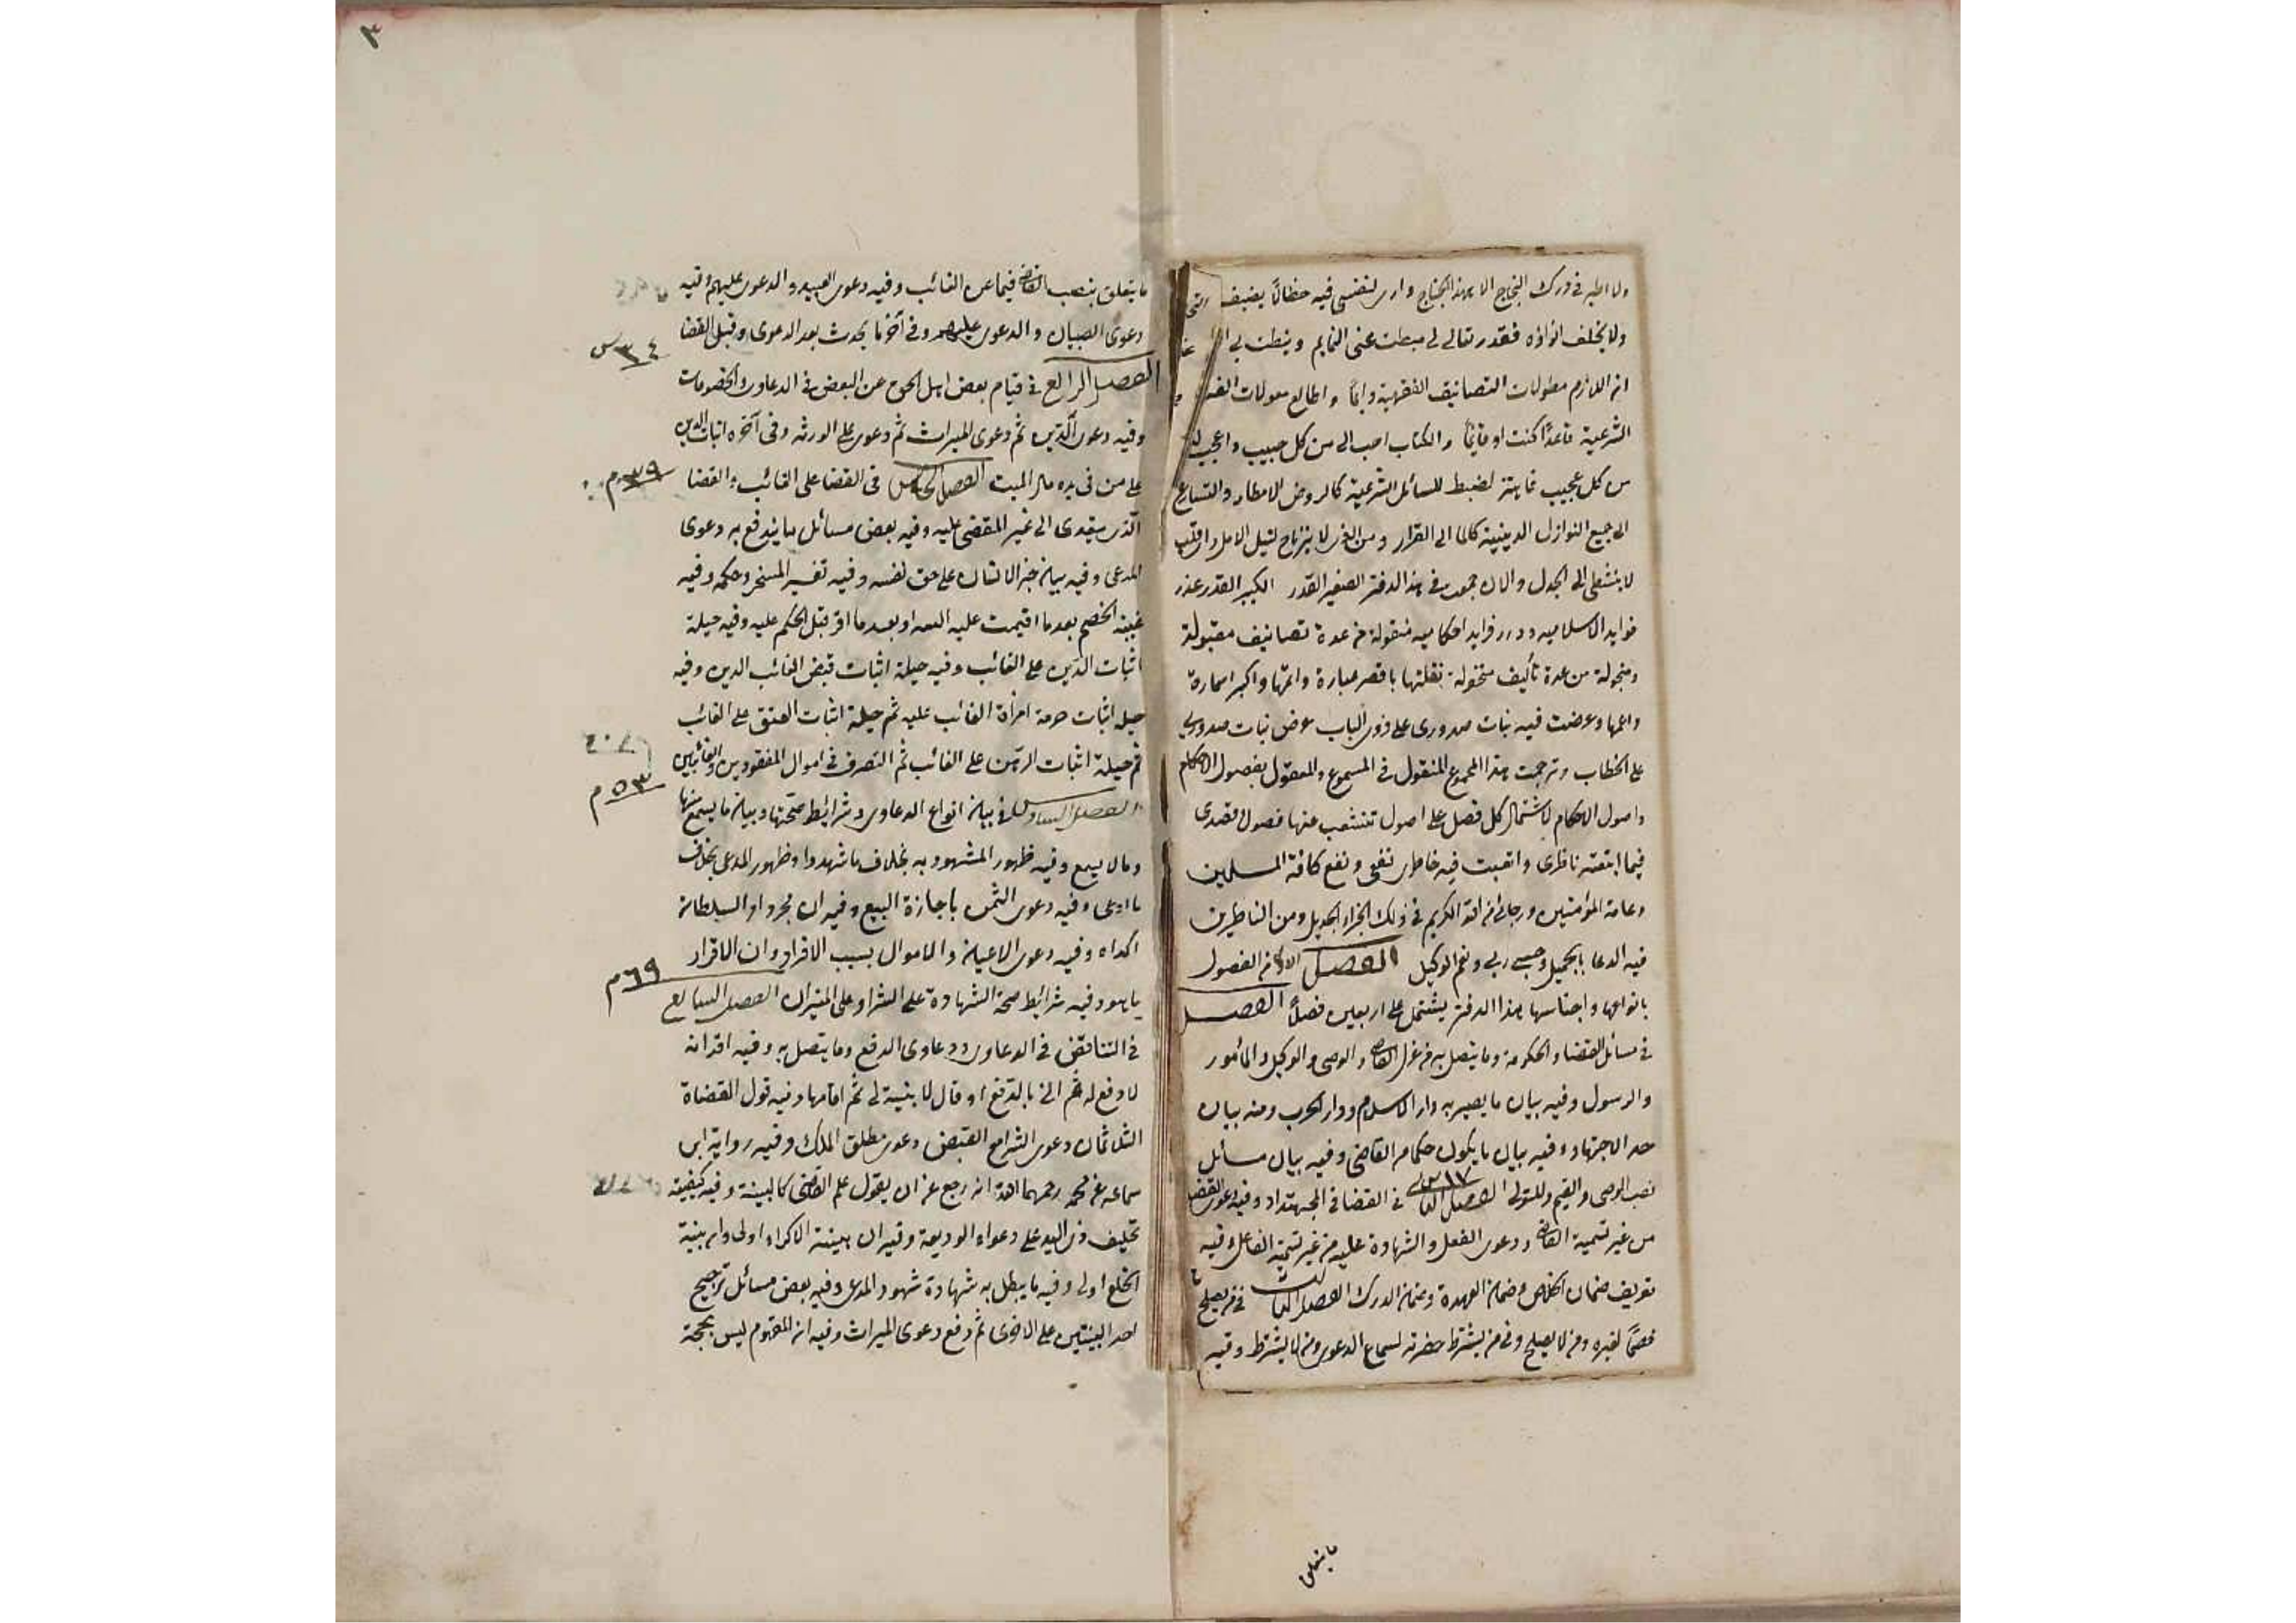 ولا اطير في درك النجاح الا بهذا الجناح وارى لنفسي فيه حظا لا يضيف
ولا يخلف انواؤه فقدر تعالى لي ميطت عني التمايم ونيطت بي
انه اللازم مطولات التصانيف الفقهية دايما واطالع معولات
الشرعية قاعدا كنت او قايما والكتاب احب الي من كل حبيب واعجب
من كل عجيب لضبط المسائل الشرعية كالروض الامطار والتسارع
الى جميع النوازل الدينية كالما الى القرار ومن الغرر لا ينزاح لنيل الامل
الى الجدل والان جمعت في هذا الدفتر الصغير القدر الكبير القدر غرر
فوايد اسلاميه ودرر فرايد احكاميه منقولة من عدة تصانيف مقبولة
ومنخولة من عدة تأليف منخولة نقلتها باقصر عبارة واتمها واكبر اشارة
واعمها وعرضت فيه بنات صدوري على ذوى الباب عوض نبات صدورى
على الخطاب وترجمت هذا المجموع المنقول في المسموع والمعقول بفصول الاحكام
واصول الاحكام لاشتمال كل فصل على اصول تتشعب منها فصول قصدى
فيما اتعبت ناظرى واتعبت فيه خاطرى نفعي ونفع كافة المسلمين
وعامة المؤمنين ورجائي من الله الكريم في ذلك الجزاء الجزيل ومن الناظرين
فيه الدعا بالجميل وحسبي ربي ونعم الوكيل الفصل الاول من الفصول
بانواعها واجناسها هذا الدفتر يشتمل على اربعين فصلا الفصل
في مسائل القضا والحكومة وما يتصل به من عزل القاضي والوصي والوكيل والمأمور
والرسول وفيه بيان ما يصير به دار الاسلام ودار الحرب ومنه بيان
حد الاجتهاد وفيه بيان ما يكون حكما من القاضي وفيه بيان مسائل
١٧س
نصب الوصي والقيم والمتولي الفصل الثاني في القضا في المجتهدات وفيه دعوى القضا
من غير تسمية القاضي ودعوى الفعل والشهادة عليه من غير تسمية الفاعل وفيه
تعريف ضمان الخلاص وضمان العهدة وضمان الدرك الفصل الثالث في من يصلح
خصما لغيره ومن لا يصلح وفي من يشترط حضرته لسماع الدعوى ومن لا يشترط وفيه
ما يتعلق
٣
ما يتعلق بنصب القاضي فيما عن الغائب وفيه دعوى العبيد والدعوى عليهم وفيه
دعوى الصبيان والدعوى عليهم وفي آخره ما يحدث بعد الدعوى وقبل القضا
٣٤س
الفصل الرابع في قيام بعض اهل الحق عن البعض في الدعاوى والخصومات
وفيه دعوى الدين ثم دعوى الميراث ثم دعوى على الورثه وفي آخره اثبات الدين
على من في يده مال الميت الفصل الخامس في القضا على الغائب والقضا
٣٩م
الذى يتعدى الى غير المقضى عليه وفيه بعض مسائل ما يندفع به دعوى
المدعى وفيه بيان جبر الانسان على حق لنفسه وفيه تفسير المسخر وحكمه وفيه
غيبة الخصم بعدما اقيمت عليه البينة او بعد ما اقر قبل الحكم عليه وفيه حيلة
اثبات الدين على الغائب وفيه حيلة اثبات قبض الغائب الدين وفيه
حيله اثبات حرمة امرأة الغائب عليه ثم حيلة اثبات العتق على الغائب
ثم حيلة اثبات الرهن على الغائب ثم التصرف في اموال المفقودين والغائبين
٥٣م
الفصل السادس في بيان انواع الدعاوى وشرائط صحتها وبيان ما يسمع منها
وما لا يسمع وفيه ظهور المشهود به بخلاف ما شهدوا وظهور المدعى بخلاف
ما ادعى وفيه دعوى الثمن باجازة البيع وفيه ان مجرد امر السلطان
اكراه وفيه دعوى الاعيان والاموال بسبب الاقرار وان الاقرار
٦٩م
ما هو وفيه شرائط صحة الشهادة على الشرا وعلى الميراث الفصل السابع
في التناقض في الدعاوى ودعاوى الدفع وما يتصل به وفيه اقر انه
لا دفع له ثم اتى بالدفع او قال لا بينة لي ثم اقامها وفيه قول القضاة
الثلاث ان دعوى الشرا مع القبض دعوى مطلق الملك وفيه رواية ابن
سماعه عن محمد رحمهما الله انه رجع عن ان يقول علم القاضي كالبينة وفيه كيفية
تحليف ذى اليد على دعواه الوديعة وفيه ان بينة الاكراه اولى وان بينة
الخلع اولى وفيه ما يبطل به شهادة شهود المدعى وفيه بعض مسائل ترجيح
احد البينتين على الاخرى ثم دفع دعوى الميراث وفيه ان المفهوم ليس بحجة